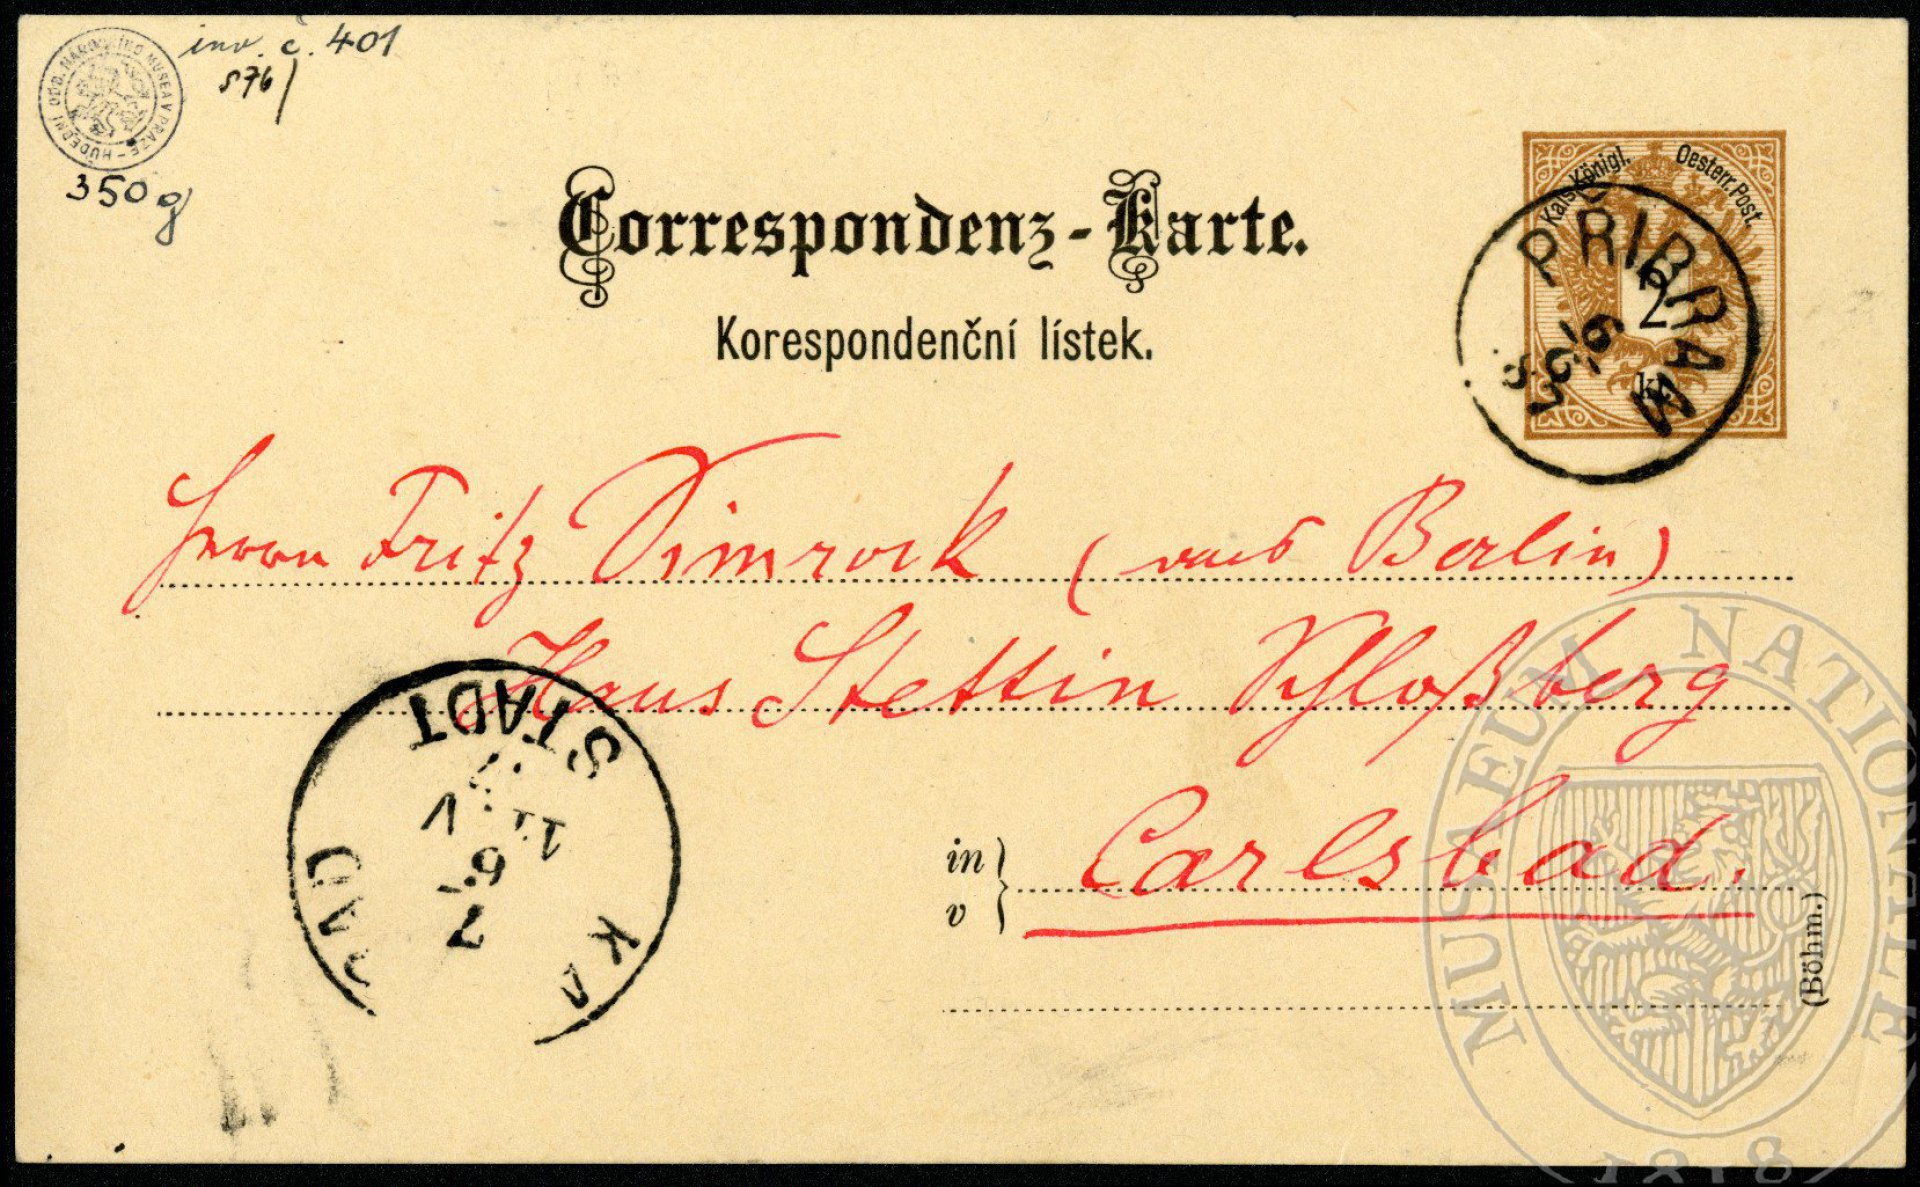 inv. č. 401
S76/
HUDEBNÍ ODD. NÁRODNÍHO MUSEA V PRAZE
350g
Correspondenz-Karte.
Korespondenční lístek.
Kais. Königl. Oesterr. Post.
2
kr.
PŘIBRAM
6
6
87
Herrn Fritz Simrock (aus Berlin)
Haus Stettin Schloßberg
in
v
Carlsbad.
STADT
11. V
6
7
(Böhm.)
MUSEUM NATIONALE
1818